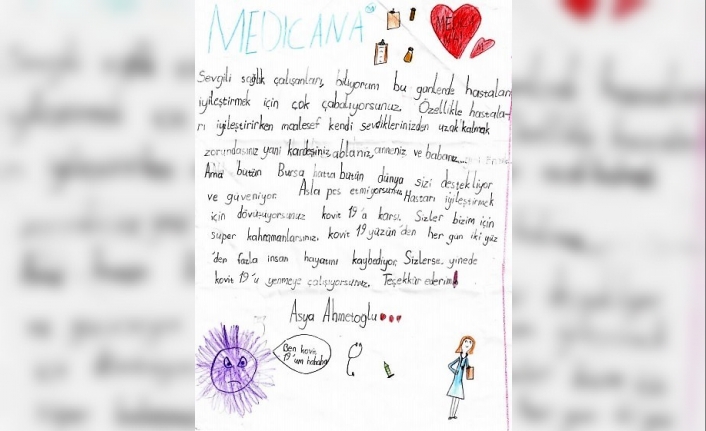 MEDICANA
Sevgili sağlık çalışanları, biliyorum bu günlerde hastaları
iyileştirmek için çok çabalıyorsunuz. Özellikle hastala-
rı iyileştirirken malesef kendi sevdiklerinizden uzak kalmak
zorundasınız yani kardeşiniz, ablanız, anneniz ve babanız...
Ama bütün Bursa hatta bütün dünya sizi destekliyor
ve güveniyor. Asla pes etmiyorsunuz. Hastaları iyileştirmek
için dövüşüyorsunuz kovit 19'a karşı. Sizler bizim için
süper kahramanlarsınız. kovit 19 yüzün'den her gün iki yüz
'den fazla insan hayatını kaybediyor. Sizlerse yinede
kovit 19'u yenmeye çalışıyorsunuz. Teşekkür ederim!
Asya Ahmetoğlu
Ben kovit
19'um hahaha